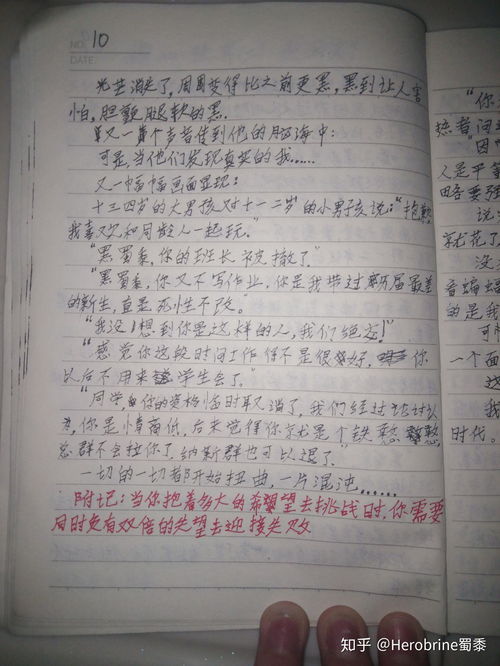 NO. 10
DATE:
光芒消失了,周围变得比之前更黑,黑到让人害
怕,胆颤腿软的黑.
又一个声音传到他的脑海中:
可是,当他们发现真实的我……
又一幅幅画面显现:
十三四岁的大男孩对十一二岁的小男孩说:“抱歉
我喜欢和同龄人一起玩.”
“黑蜀黍,你的班长被撤了”
“黑蜀黍,你又不写作业,你是我带过历届最差
的新生,真是死性不改。”
“我没想到你是这样的人,我们绝交!”
“感觉你这段时间工作做得不是很好,你
以后不用来学生会了。”
“同学,你的资格临时取消了,我们经过讨论认
为,你是情商低,后来觉得你就是个铁憨憨
总群不会拉你了,纳斯群也可以退了.”
一切的一切都开始扭曲,一片混沌……
附记:当你抱着多大的希望去挑战时,你需要
同时负有双倍的失望去迎接失败
“你
热者问道
“因
人是平等
略要强
就花了
没
音蝙蝠
的是我
可
一个面
这
我
时代。
知乎 @Herobrine蜀黍